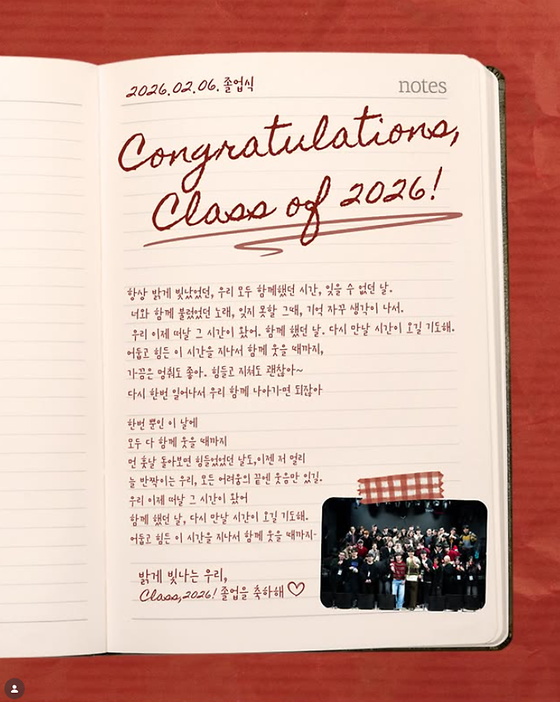 2026.02.06. 졸업식
notes
Congratulations,
Class of 2026!
항상 밝게 빛났었던, 우리 모두 함께했던 시간, 잊을 수 없던 날.
너와 함께 불렀었던 노래, 잊지 못할 그때, 기억 자꾸 생각이 나서.
우리 이제 떠날 그 시간이 왔어. 함께 했던 날. 다시 만날 시간이 오길 기도해.
어둡고 힘든 이 시간을 지나서 함께 웃을 때까지,
가끔은 멈춰도 좋아. 힘들고 지쳐도 괜찮아~
다시 한번 일어나서 우리 함께 나아가면 되잖아
한번 뿐인 이 날에
모두 다 함께 웃을 때까지
먼 훗날 돌아보면 힘들었었던 날도,이젠 저 멀리
늘 반짝이는 우리, 모든 어려움의 끝엔 웃음만 있길.
우리 이제 떠날 그 시간이 왔어
함께 했던 날, 다시 만날 시간이 오길 기도해.
어둡고 힘든 이 시간을 지나서 함께 웃을 때까지-
밝게 빛나는 우리,
Class,2026! 졸업을 축하해♡